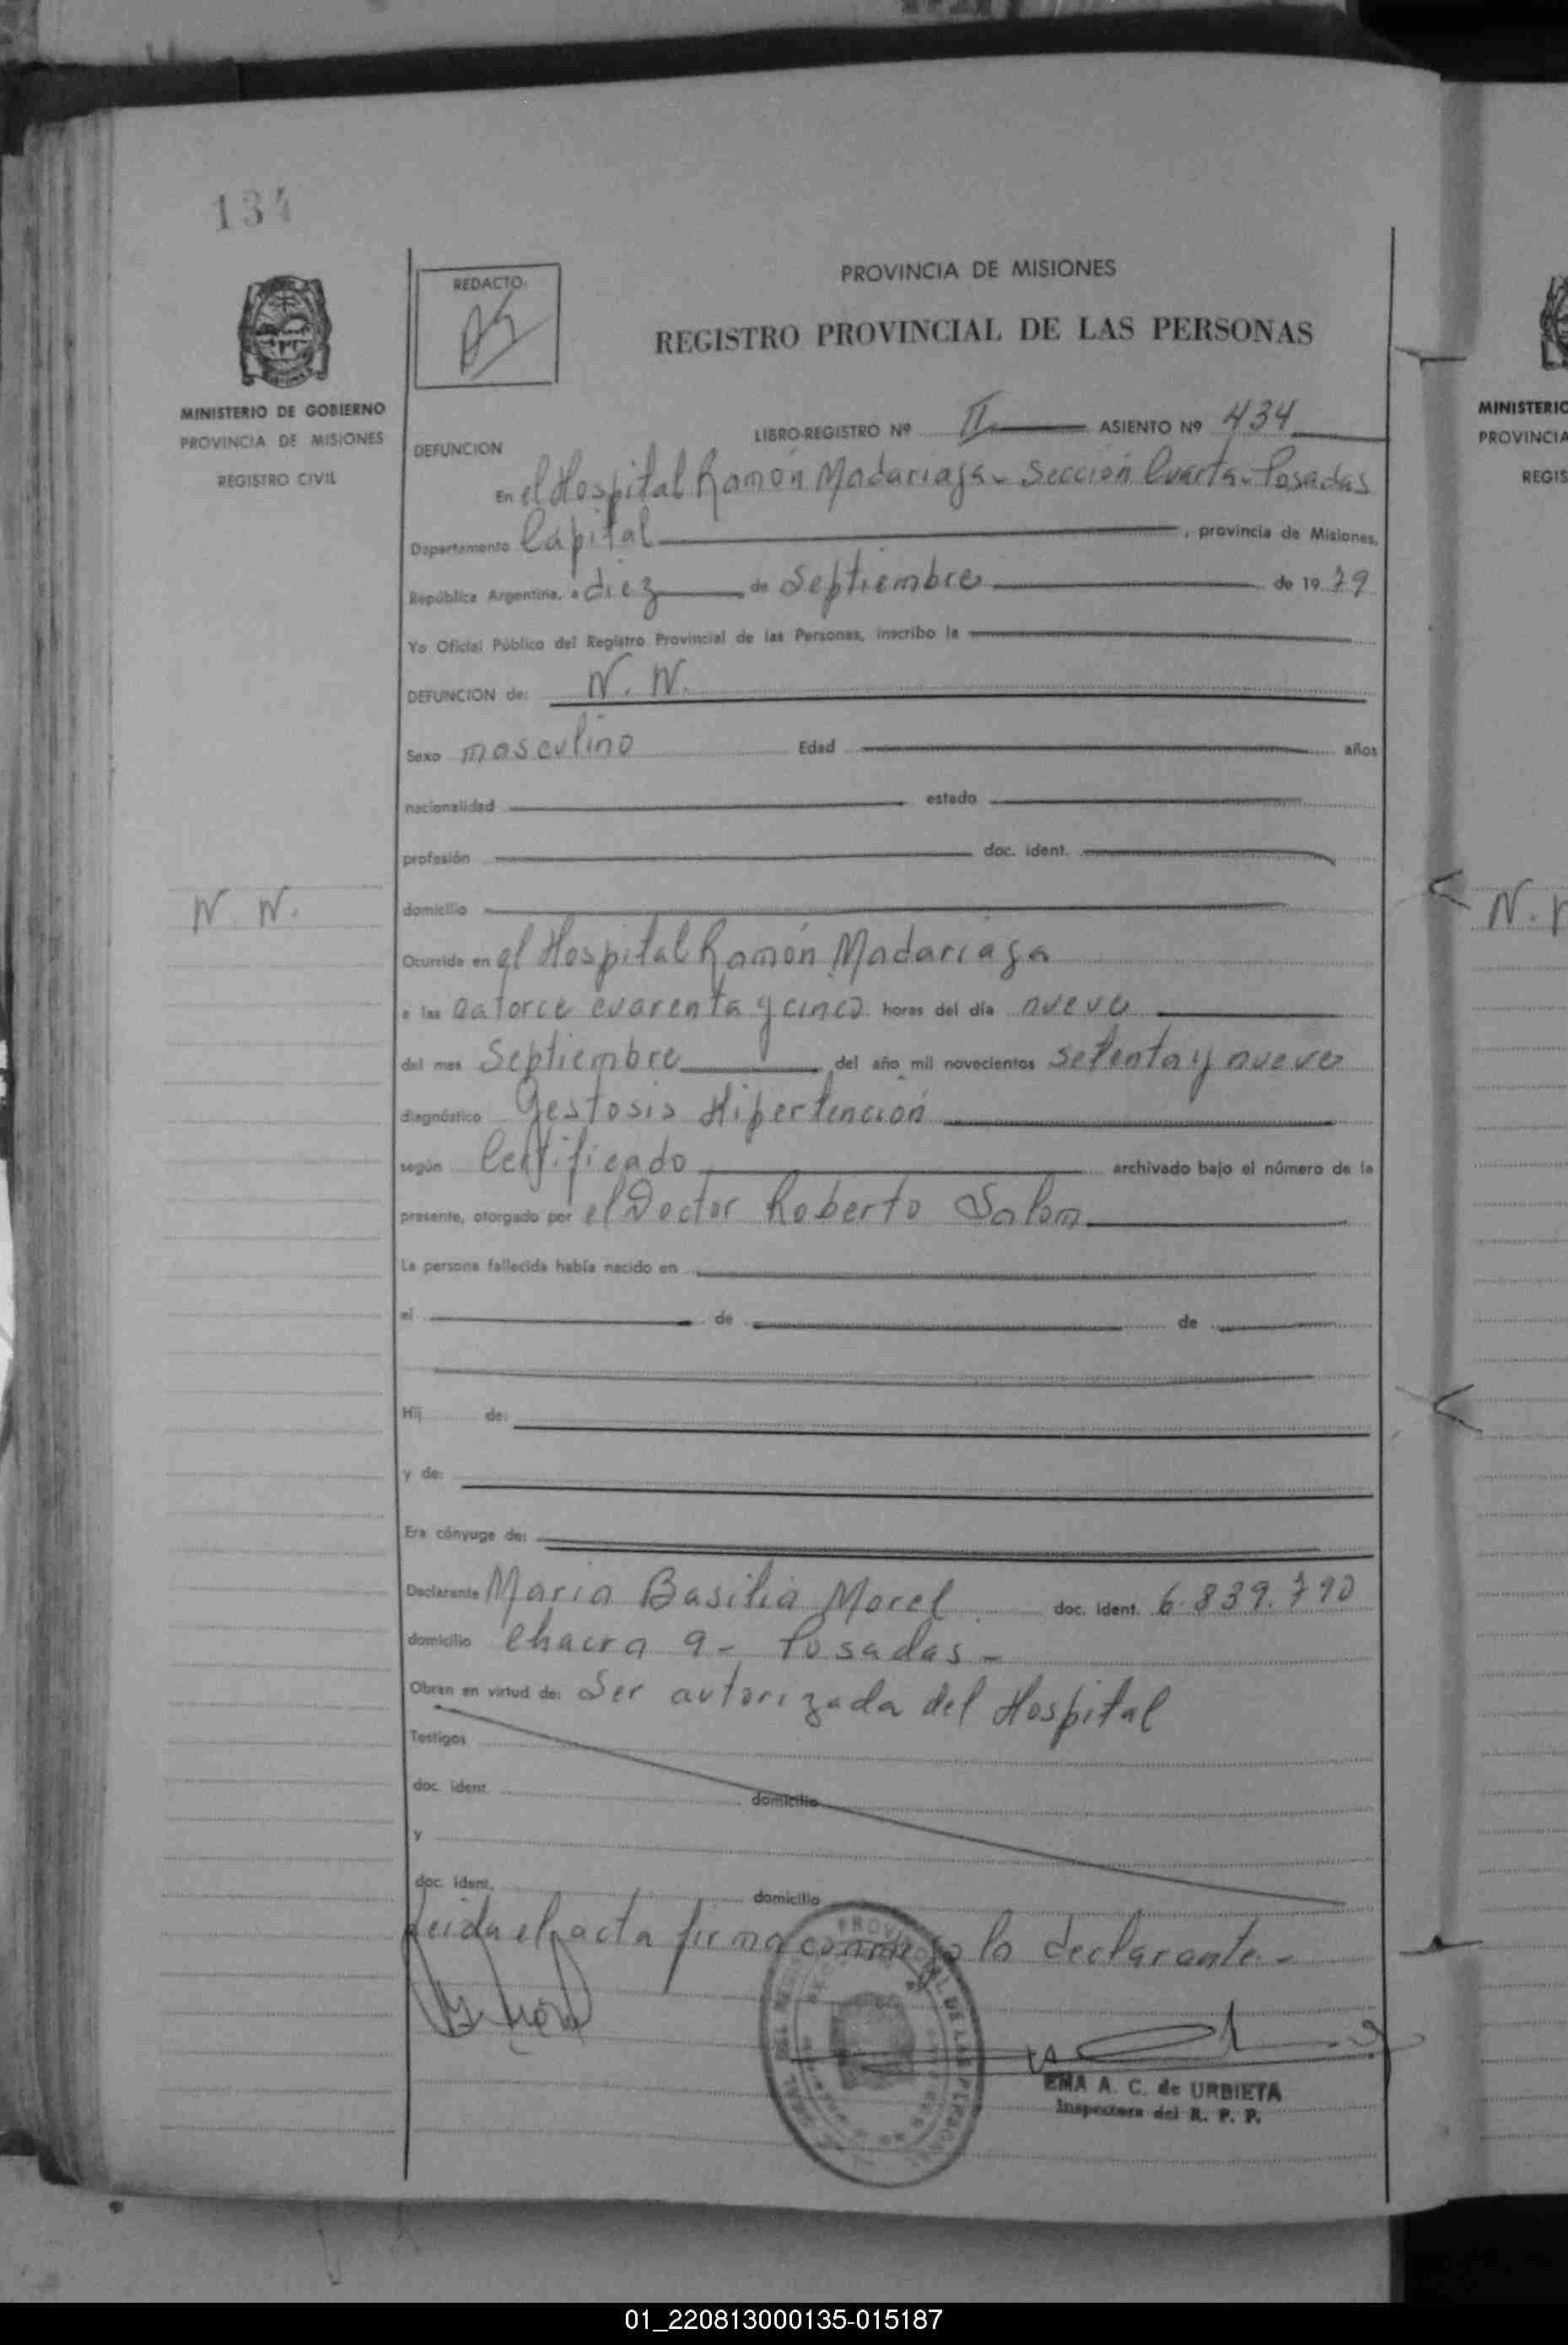 134
PROVINCIA DE MISIONES
REDACTO.
REGISTRO PROVINCIAL DE LAS PERSONAS
MINISTERIO DE GOBIERNO
PROVINCIA DE MISIONES
REGISTRO CIVIL
LIBRO-REGISTRO Nº II ASIENTO Nº 434
DEFUNCION
En el Hospital Ramón Madariaga - Sección Cuarta - Posadas
Departamento Capital, provincia de Misiones,
República Argentina, a diez de Septiembre de 1979
Yo Oficial Público del Registro Provincial de las Personas, inscribo la
DEFUNCION de: N. N.
Sexo masculino Edad años
nacionalidad estado
profesión doc. ident.
N. N.
domicilio
Ocurrida en el Hospital Ramón Madariaga
a las catorce cuarenta y cinco horas del día nueve
del mes Septiembre del año mil novecientos setenta y nueve
diagnóstico Gestosis Hipertención
según Certificado archivado bajo el número de la
presente, otorgado por el Doctor Roberto Salom
La persona fallecida había nacido en
el de de
Hij de:
y de:
Era cónyuge de:
Declarante Maria Basilia Morel doc. ident. 6.839.790
domicilio Chacra 9 - Posadas -
Obran en virtud de: Ser autorizada del Hospital
Testigos
doc. ident. domicilio
y
doc. ident. domicilio
Leida el acta firma conmigo la declarante. -
EMA A. C. de URBIETA
Inspectora del R. P. P.
MINISTERIO
PROVINCIA
REGIS
N.
01_220813000135-015187